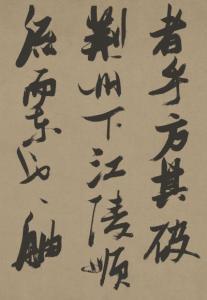 者乎方其破
荊州下江陵順
流而東也舳